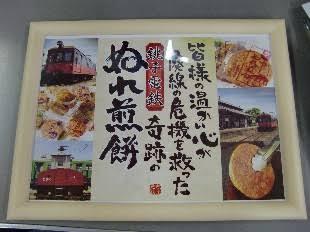 皆様の温かい心が
鉄道の危機を救った
銚子電鉄 奇跡の
ぬれ煎餅